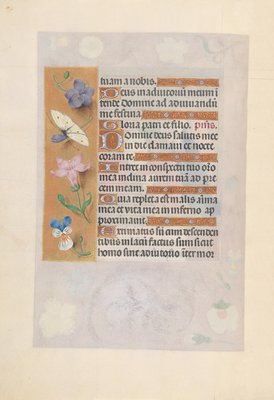 tuam a nobis.
Deus in adiutoriū meum i
tende domine ad adiuuandū
me festina.
Gloria patri et filio. pſmꝰ.
Domine deus salutis mee
in die clamaui et nocte
coram te.
Intret in conspectu tuo oro
mea inclina aurem tuā ad pre
cem meam.
Quia repleta est malis aīma
mea et vita mea in inferno ap
propinquauit.
Estimatus sū cum descendenti
tibus in lacū factus sum sicut
homo sine adiutorio iter mor